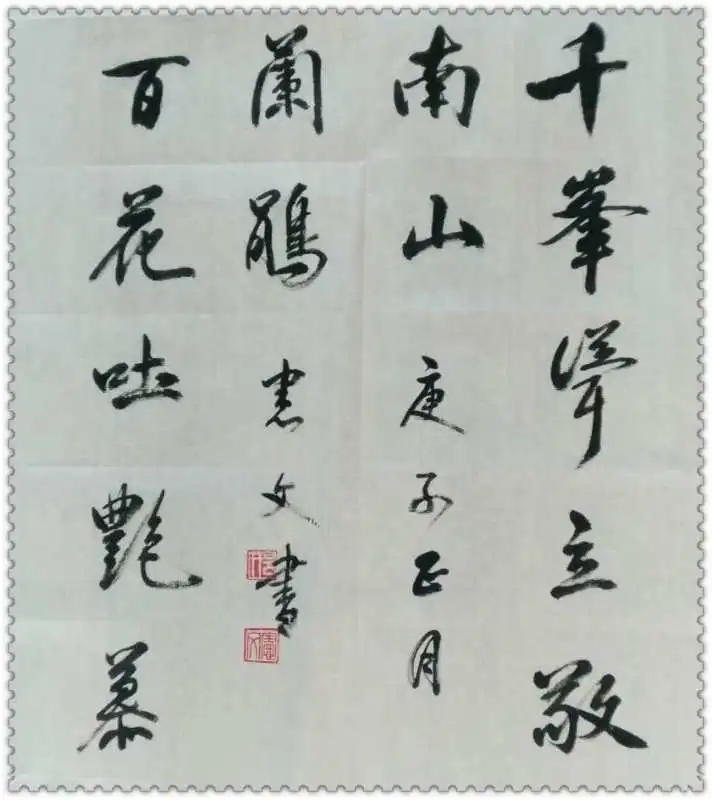 千峯聳立敬
南山 庚子正月
百花吐艷慕
蘭鵑 憲文書